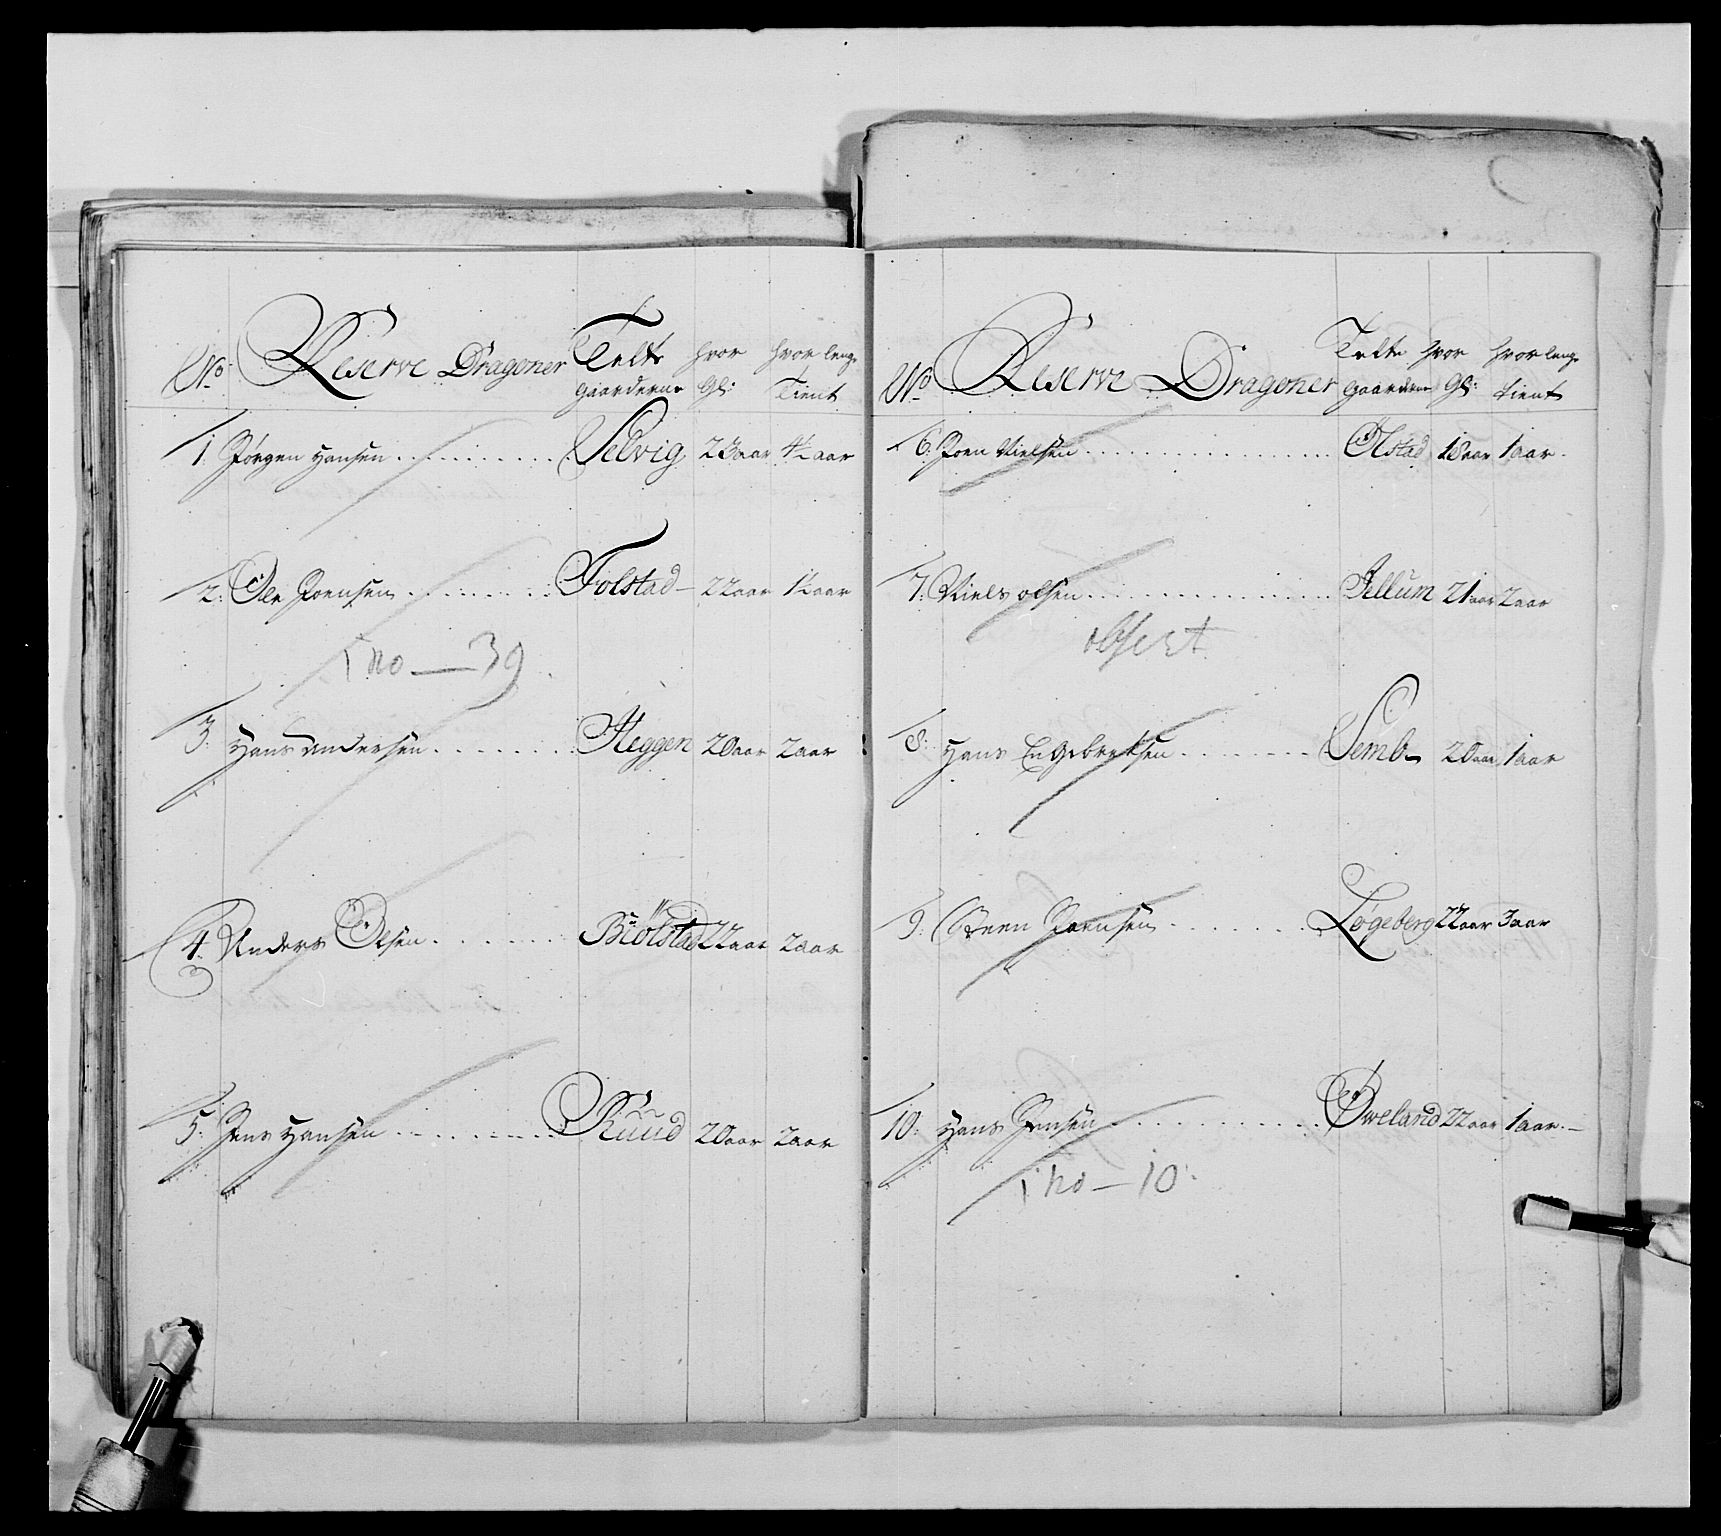 No. Reserve Dragoner Telte gaarderne hvor Gl: hvor lenge Tient
1. Jørgen Hansen Selvig 23 aar 4½ aar
2. Ole Joensen Folstad 22 aar 1½ aar
i no — 39
3. Hans Andersen Heggen 20 aar 2 aar
4. Anders Olsen 22 aar 2 aar
5. Jens Hansen Ruud 20 aar 2 aar
No Reserve Dragoner Telte gaarderne hvor Gl: hvor lenge tient
6. Joen Nielsen Ølstad 18 aar 1 aar
7. Niels olsen Jellum 21 aar 2 aar
8. Hans Engebretsen Semb 20 aar 1 aar
9. Steen Joensen Løgeberg 22 aar 3 aar
10. Hans Jensen Øweland 22 aar 1 aar
i no — 10